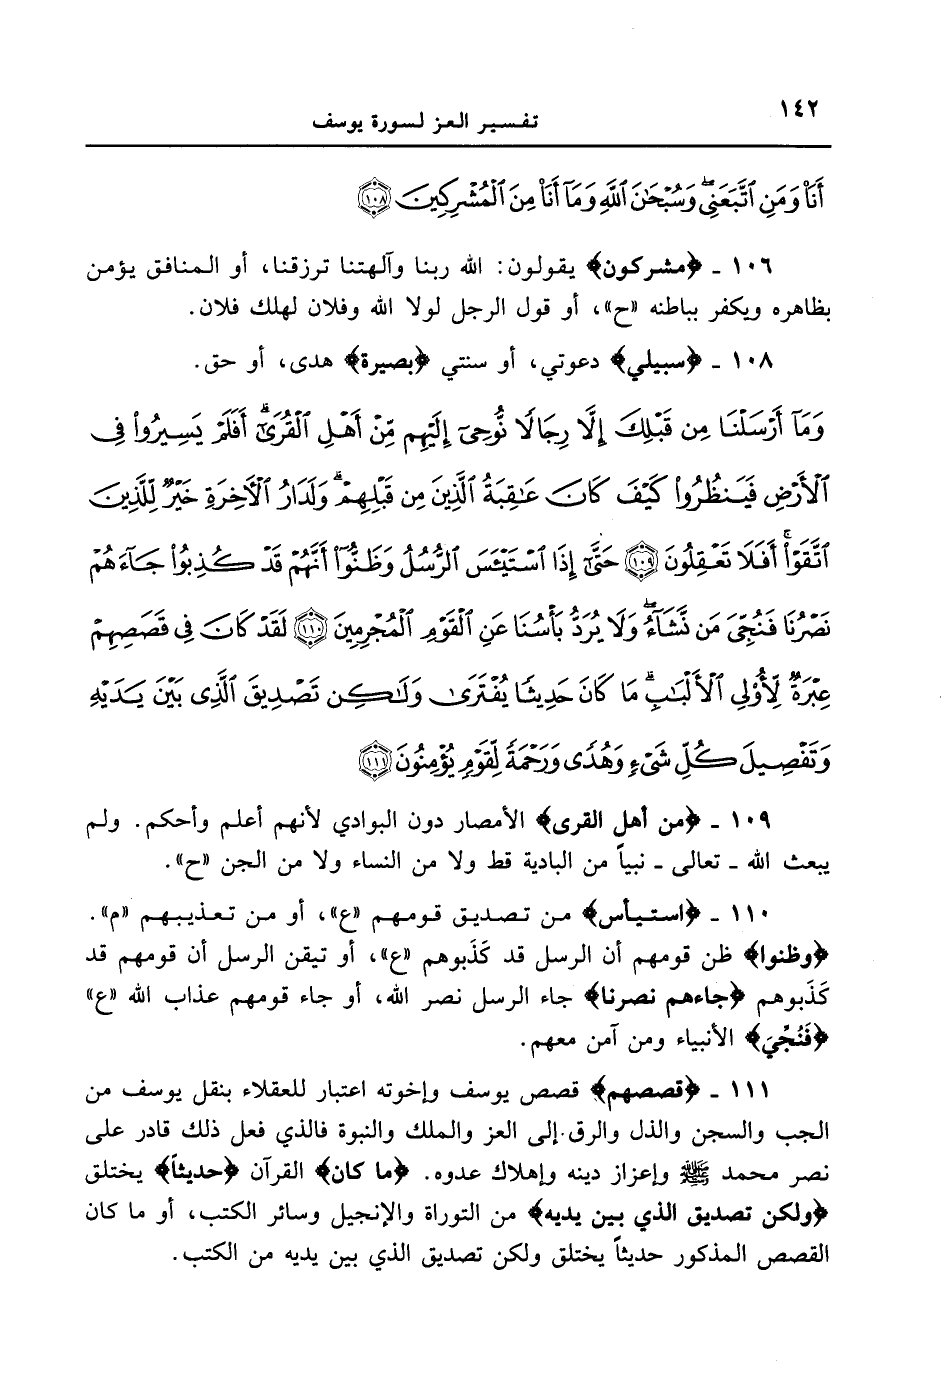 ١٤٢
تفسير العز لسورة يوسف
أَنَا۠ وَمَنِ ٱتَّبَعَنِىۖ وَسُبْحَٰنَ ٱللَّهِ وَمَآ أَنَا۠ مِنَ ٱلْمُشْرِكِينَ ١٠٨
١٠٦ ـ ﴿مشركون﴾ يقولون: الله ربنا وآلهتنا ترزقنا، أو المنافق يؤمن
بظاهره ويكفر بباطنه «ح»، أو قول الرجل لولا الله وفلان لهلك فلان.
١٠٨ ـ ﴿سبيلي﴾ دعوتي، أو سنتي ﴿بصيرة﴾ هدى، أو حق.
وَمَآ أَرْسَلْنَا مِن قَبْلِكَ إِلَّا رِجَالًا نُّوحِىٓ إِلَيْهِم مِّنْ أَهْلِ ٱلْقُرَىٰٓۗ أَفَلَمْ يَسِيرُوا۟ فِى
ٱلْأَرْضِ فَيَنظُرُوا۟ كَيْفَ كَانَ عَٰقِبَةُ ٱلَّذِينَ مِن قَبْلِهِمْۗ وَلَدَارُ ٱلْءَاخِرَةِ خَيْرٌ لِّلَّذِينَ
ٱتَّقَوْا۟ۚ أَفَلَا تَعْقِلُونَ ١٠٩ حَتَّىٰٓ إِذَا ٱسْتَيْـَٔسَ ٱلرُّسُلُ وَظَنُّوٓا۟ أَنَّهُمْ قَدْ كُذِبُوا۟ جَآءَهُمْ
نَصْرُنَا فَنُجِّىَ مَن نَّشَآءُۖ وَلَا يُرَدُّ بَأْسُنَا عَنِ ٱلْقَوْمِ ٱلْمُجْرِمِينَ ١١٠ لَقَدْ كَانَ فِى قَصَصِهِمْ
عِبْرَةٌ لِّأُو۟لِى ٱلْأَلْبَٰبِۗ مَا كَانَ حَدِيثًا يُفْتَرَىٰ وَلَٰكِن تَصْدِيقَ ٱلَّذِى بَيْنَ يَدَيْهِ
وَتَفْصِيلَ كُلِّ شَىْءٍ وَهُدًى وَرَحْمَةً لِّقَوْمٍ يُؤْمِنُونَ ١١١
١٠٩ ـ ﴿من أهل القرى﴾ الأمصار دون البوادي لأنهم أعلم وأحكم. ولم
يبعث الله ـ تعالى ـ نبياً من البادية قط ولا من النساء ولا من الجن «ح».
١١٠ ـ ﴿استيأس﴾ من تصديق قومهم «ع»، أو من تعذيبهم «م».
﴿وظنوا﴾ ظن قومهم أن الرسل قد كَذَبوهم «ع»، أو تيقن الرسل أن قومهم قد
كَذَبوهم ﴿جاءهم نصرنا﴾ جاء الرسل نصر الله، أو جاء قومهم عذاب الله «ع»
﴿فَنُجِّيَ﴾ الأنبياء ومن آمن معهم.
١١١ ـ ﴿قصصهم﴾ قصص يوسف وإخوته اعتبار للعقلاء بنقل يوسف من
الجب والسجن والذل والرق إلى العز والملك والنبوة فالذي فعل ذلك قادر على
نصر محمد ﷺ وإعزاز دينه وإهلاك عدوه. ﴿ما كان﴾ القرآن ﴿حديثاً﴾ يختلق
﴿ولكن تصديق الذي بين يديه﴾ من التوراة والإنجيل وسائر الكتب، أو ما كان
القصص المذكور حديثاً يختلق ولكن تصديق الذي بين يديه من الكتب.